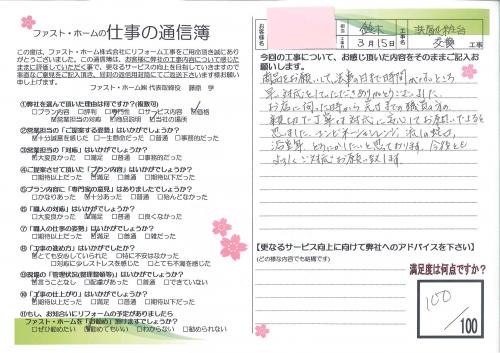 ファスト・ホームの 仕事の通信簿
この度は、ファスト・ホーム株式会社にリフォーム工事をご用命頂き誠にあり
がとうございました。この通信簿は、お客様に弊社の工事内容について感じた
ままに評価していただく事で、更なるサービスの向上を目指していきますので
率直なご意見をご記入頂き、別封の返信用封筒にてご返送下さいます様お願い
申し上げます。
ファスト・ホーム㈱ 代表取締役 藤原 亨
①弊社を選んで頂いた理由は何ですか?(複数可)
□プラン内容 □評判 □専門性 □サービス内容 □価格
□営業担当の対応 □商品説明 □当社の場所
②営業担当の「ご提案する姿勢」はいかがでしたか?
□十分誠意を感じた □一生懸命だった □普通 □事務的だった
③営業担当の「対応」はいかがでしたか?
□大変良かった □満足 □普通 □事務的だった
④ご提案させて頂いた「プラン内容」はいかがでしたか?
□期待以上だった □満足 □普通 □期待以下だった
⑤プラン内容に「専門家の意見」はありましたか?
□かなりあった □十分あった □普通 □殆んどなかった
⑥「職人の対応」はいかがでしたか?
□大変良かった □満足 □普通 □良くなかった
⑦「職人の仕事の姿勢」はいかがでしたか?
□期待以上だった □満足 □普通 □雑だった
⑧「工事の進め方」はいかがでしたか?
□とても安心していられた □特に不安はなかった
□対応に少しストレスを感じた □とても不満を感じた
⑨現場の「管理状況(整理整頓等)」はいかがでしたか?
□言うことなし □配慮があった □普通 □できていない
⑩「工事の仕上がり」はいかがでしたか?
□期待以上だった □満足 □普通 □期待以下だった
⑪もし、お知り合いにリフォームの予定がありましたら
ファスト・ホームを「お勧め」頂けますでしょうか?
□ぜひ勧めたい □勧めてもいい □わからない □勧められない
お客様名
担当 鈴木
3月15日
工事名
洗面化粧台
交換 工事
今回の工事について、お感じ頂いた内容をそのままご記入お
願いします。
商品をお願いして、
早い対応をしてくださりありがとうございました。
親切で丁寧な対応に安心してお願いできると
思いました。
よろしくご対応お願い致します。
【更なるサービス向上に向けて弊社へのアドバイスを下さい】
(どの様な内容でも結構です)
満足度は何点ですか?
100
/100